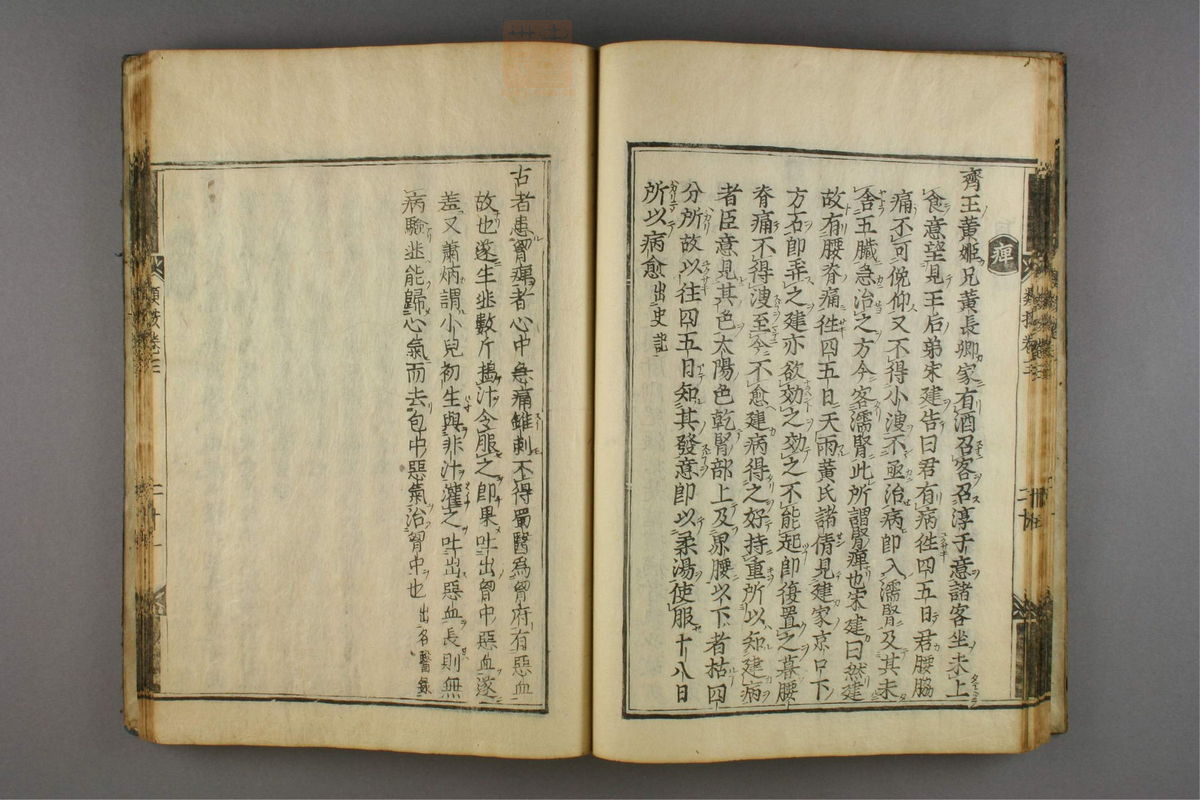 痺
齊王黃姬兄黃長卿家有酒召客召淳于意諸客坐未上
食意望見王后弟宋建告曰君有病徃四五日君腰脇
痛不可俛仰又不得小溲不亟治病即入濡腎及其未
舍五臟急治之方今客濡腎此所謂腎痺也宋建曰然建
故有腰脊痛徃四五日天雨黃氏諸倩見建家京口下
方石即弄之建亦欲効之効之不能起即復置之暮腰
脊痛不得溲至今不愈建病得之好持重所以知建病
者臣意見其色太陽色乾腎部上及界腰以下者枯四
分所故以往四五日知其發意即以柔湯使服十八日
所以病愈 出史記
古者患胷痺者心中急痛錐刺不得蜀醫為胷府有惡血
故也遂生韭數斤搗汁令服之即果吐出胷中惡血遂
羞又蕭炳謂小兒初生與韭汁灌之吐出惡血長則無
病驗韭能歸心氣而去包中惡氣治胷中也 出名醫錄